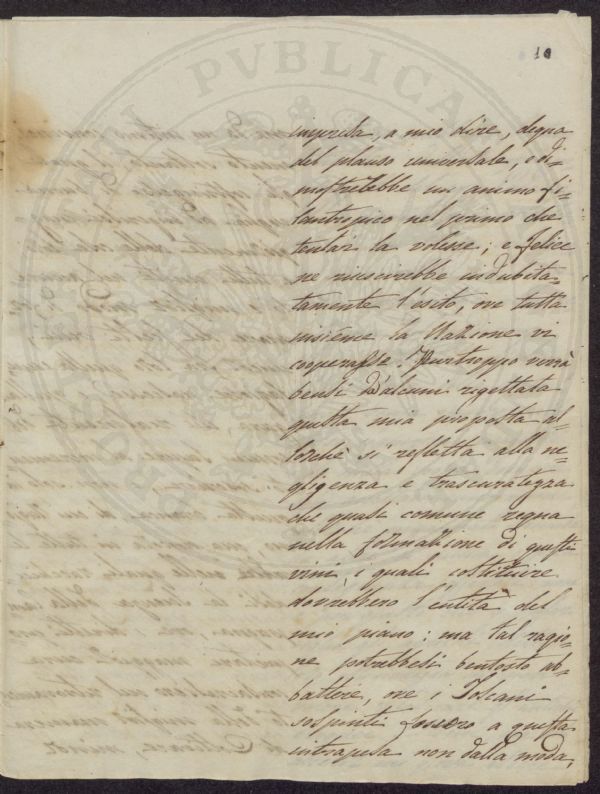 10
impresa, a mio dire, degna
del plauso universale, e di-
mostrerebbe un animo fi-
lantropico nel primo che
tentar la volesse; e felice
ne riuscirebbe indubita-
tamente l'esito, ove tutta
insiéme la Nazione vi
cooperasse. Purtroppo verrà
bensì d'alcuni rigettata
questa mia proposta al-
lorchè si refletta alla ne-
gligenza e trascuratezza
che quasi comune regna
nella formazione di questi
vini, i quali costituire
dovrebbero l'entità del
mio piano: ma tal ragio-
ne potrebbesi bentosto ab-
battere, ove i Toscani
sospinti fossero a questa
intrapesa non dalla moda,
PVBLICA